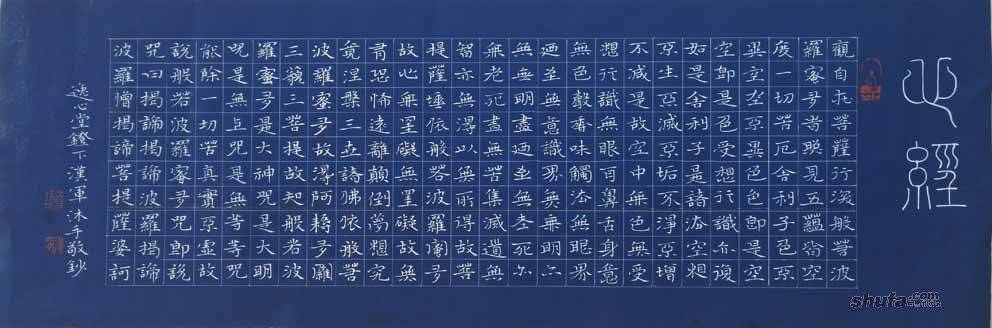 心經
觀自在菩薩行深般若波
羅蜜多旹照見五蘊皆空
度一切苦厄舍利子色不
異空空不異色色即是空
空即是色受想行識亦復
如是舍利子是諸法空相
不生不滅不垢不淨不增
不減是故空中無色無受
想行識無眼耳鼻舌身意
無色聲香味觸法無眼界
廼至無意識界無無明亦
無無明盡廼至無老死亦
無老死盡無苦集滅道無
智亦無得以無所得故菩
提薩埵依般若波羅蜜多
故心無罣礙無罣礙故無
有恐怖遠離顛倒夢想究
竟涅槃三世諸佛依般若
波羅蜜多故得阿耨多羅
三藐三菩提故知般若波
羅蜜多是大神咒是大明
咒是無上咒是無等等咒
能除一切苦真實不虛故
說般若波羅蜜多咒即說
咒曰揭諦揭諦波羅揭諦
波羅僧揭諦菩提薩婆訶
逸心堂鐙下漢軍沐手敬鈔
shufa.com